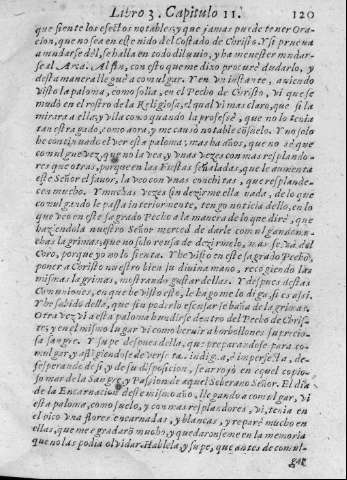 Libro 3. Capitulo 11. 120
que siente los efectos notables, y que jamas puede tener Ora-
cion, que no sea en este nido del Costado de Christo. Y si prueua
a mudarse dèl, se halla en todo diluuio, y ha menester mudar-
se al Arca. Al fin, con esto que me dixo procurè dudarlo, y
desta manera lleguè a comulgar, y en vn instante, auiendo
visto la paloma, como solia, en el Pecho de Christo, vi que se
mudò en el rostro de la Religiosa, el qual vi mas claro, que si la
mirara a ella, y vila como quando la professè, que no lo tenia
tan estragado, como aora, y me causò notable cõsuelo. Y no solo
he continuado el ver esta paloma, mas ha años, que no sè que
comulgue vez, que no la vea, y vnas vezes con mas resplando-
res que otras, porque en las Fiestas señaladas, que le aumenta
este Señor el fauor, la veo con vnas conchitas, que resplande-
cen mucho. Y muchas vezes sin dezirme ella nada, de lo que
comulgando le passa interiormente, tengo noticia dello, en lo
que veo en este sagrado Pecho a la manera de lo que dirè, que
haziendola nuestro Señor merced de darle comulgando mu-
chas lagrimas, que no solo rehusa de dezirmelo, mas se và del
Coro, porque yo no lo sienta. Y he visto en este sagrado Pecho,
poner a Christo nuestro bien su diuina mano, recogiendo las
mismas lagrimas, mostrando gustar dellas. Y despues destas
Comuniones, en que he visto esto, le hago me lo diga si es assi.
Y he sabido della, que sin poderlo escusar se baña de lagrimas.
Otra vez vi a esta paloma hundirse dentro del Pecho de Chris-
to, y en el mismo lugar vi como beruir a borbollones su precio-
sa sangre. Y supe despues della, que preparandose para co-
mulgar, y afligiendose de verse tan indigna, è imperfeta, de-
sesperando de si, y de su disposicion, se arrojò en aquel copio-
so mar de la Sangre, y Passion de aquel Soberano Señor. El dia
de la Encarnacion deste mismo año, llegando a comulgar, vi
esta paloma, como suelo, y con mas resplandores, vi, tenia en
el pico vna flores encarnadas, y blancas, y reparè mucho en
ellas, que me agradarõ mucho, y quedaronseme en la memoria
que no las podia oluidar. Hablela, y supe, que antes de comul-
gar